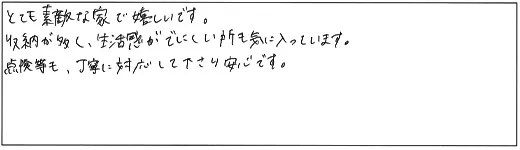 とても素敵な家で嬉しいです。
収納が多く、生活感がでにくい所も気に入っています。
点検等も、丁寧に対応して下さり安心です。